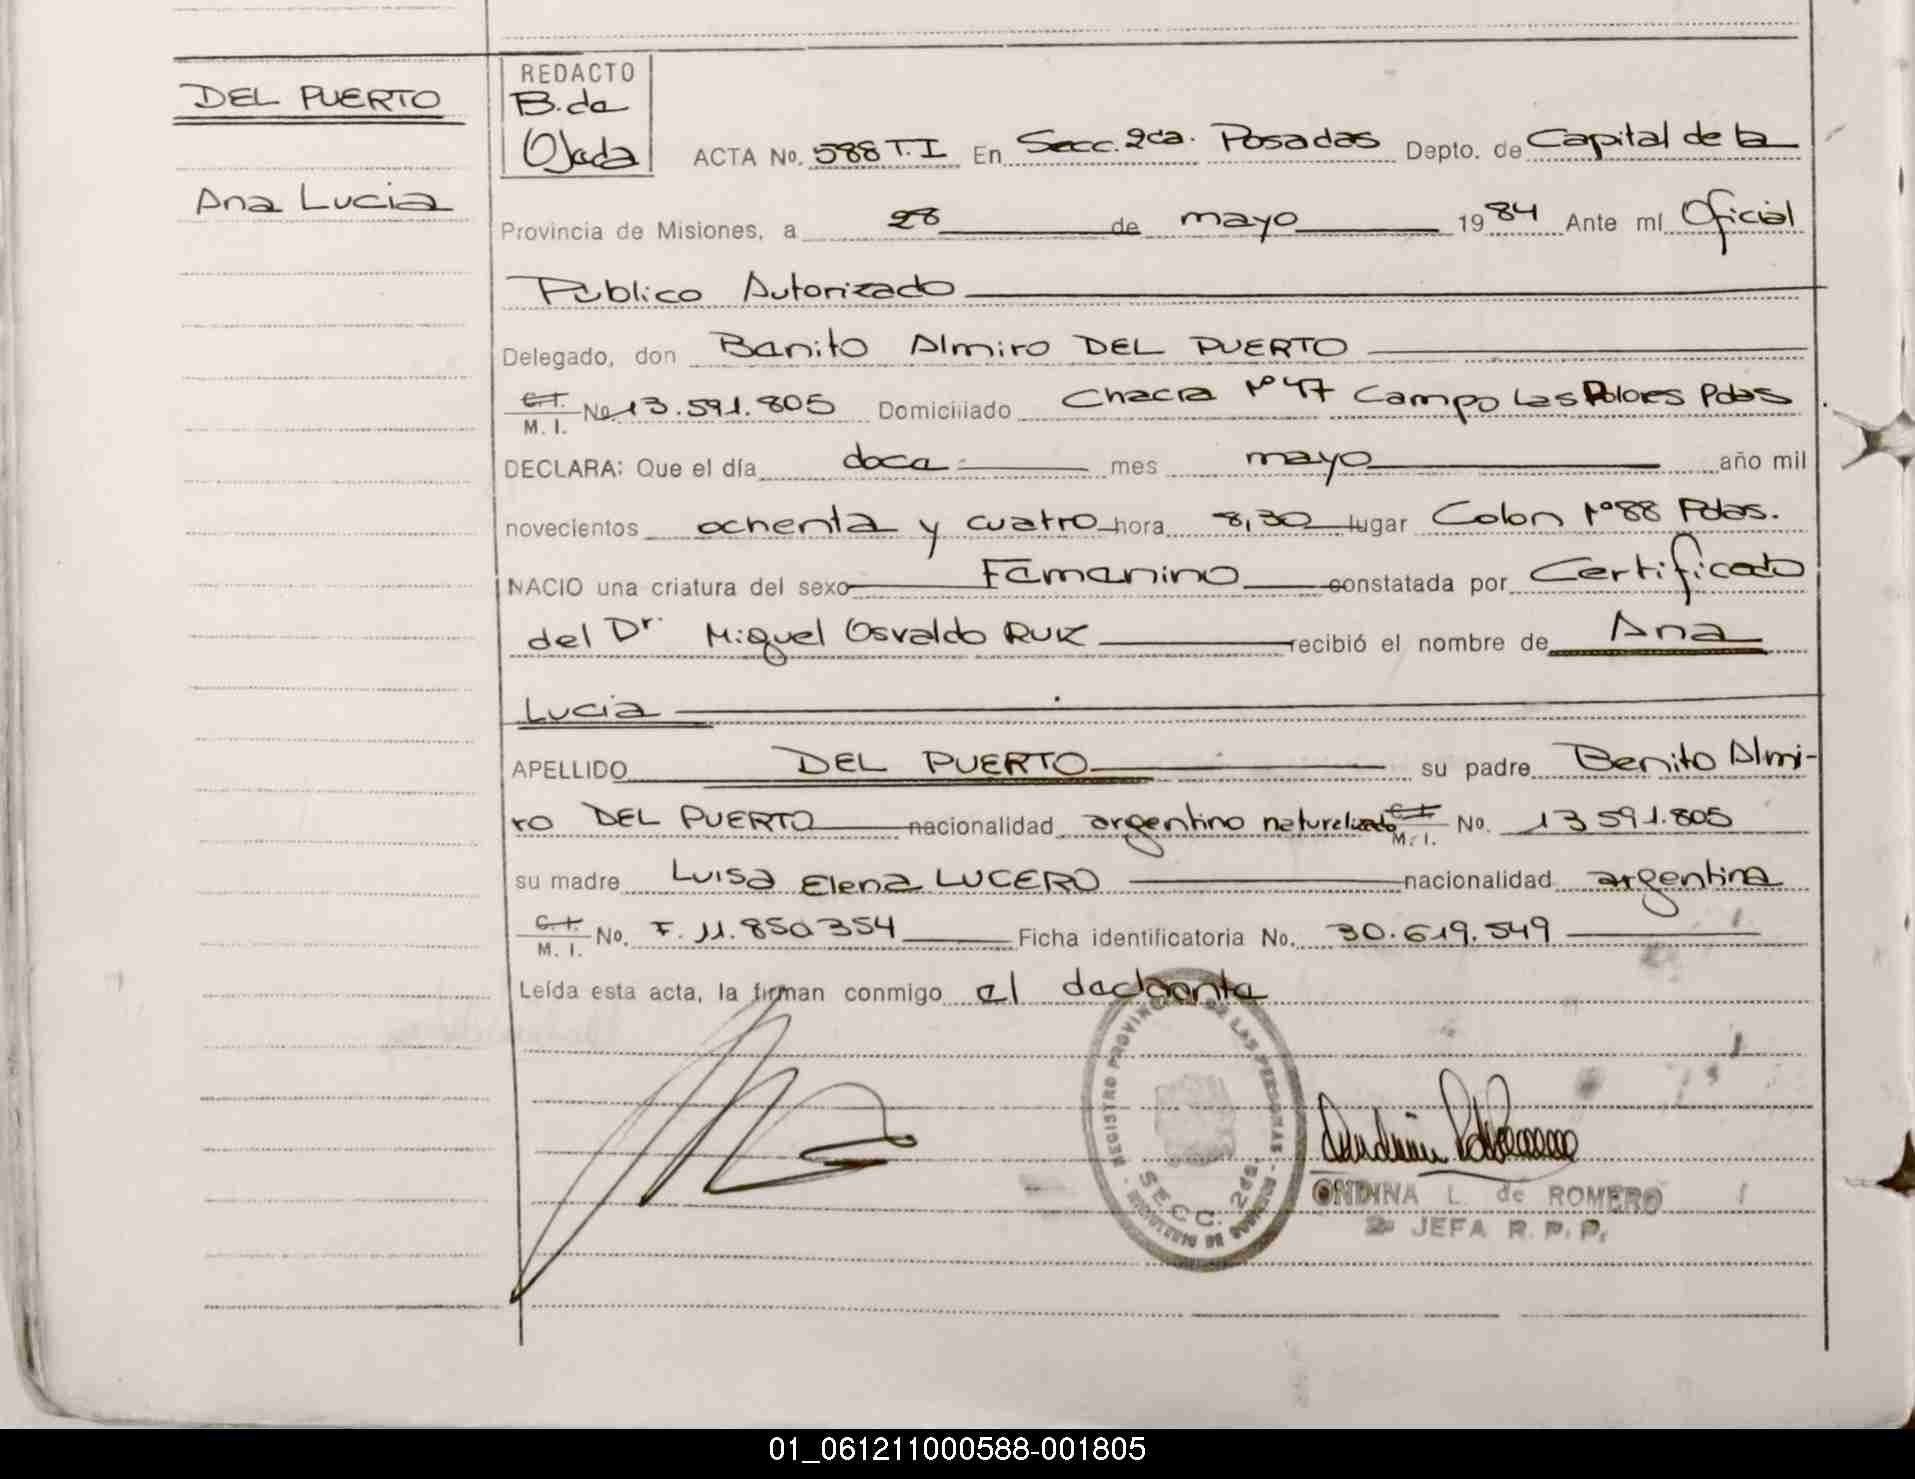 DEL PUERTO
Ana Lucia
REDACTO
B. de
Ojeda
ACTA No. 588 T.I En Secc. 2da. Posadas Depto. de Capital de la
Provincia de Misiones, a 28 de mayo 1984 Ante mí Oficial
Público Autorizado
Delegado, don Benito Almiro DEL PUERTO
C.I. M. I. No 13.591.805 Domiciliado Chacra Nº 47 Campo Las Dolores Pdas
DECLARA: Que el día doce mes mayo año mil
novecientos ochenta y cuatro hora 8,30 lugar Colon Nº 88 Pdas.
NACIO una criatura del sexo Femenino constatada por Certificado
del Dr. Miguel Osvaldo RUIZ recibió el nombre de Ana
Lucia
APELLIDO DEL PUERTO su padre Benito Almi-
ro DEL PUERTO nacionalidad argentino naturalizado C.I. M. I. No. 13 591.805
su madre Luisa Elena LUCERO nacionalidad argentina
C.I. M. I. No. F. 11.850.354 Ficha identificatoria No. 30.619.549
Leída esta acta, la firman conmigo el declarante
REGISTRO PROVINCIAL DE LAS PERSONAS
SECC. 2da.
ONDINA L. de ROMERO
JEFA R. P. P.
01_061211000588-001805